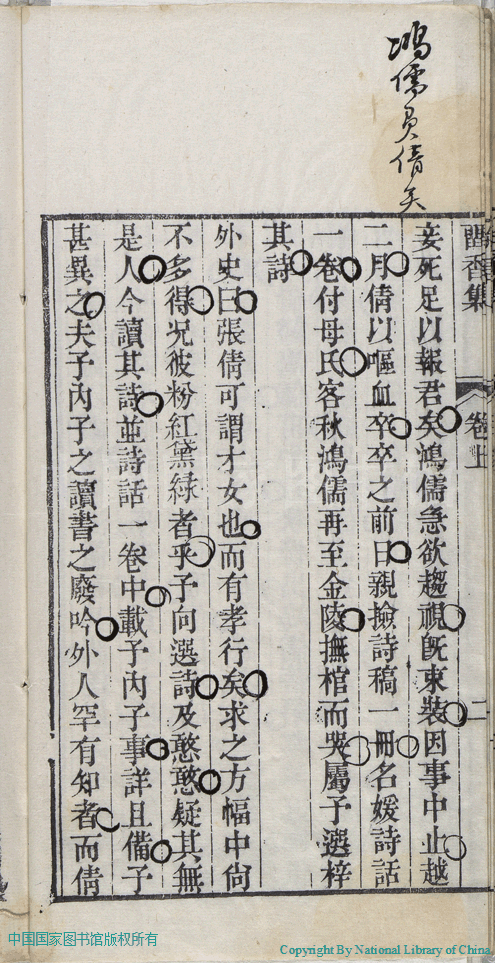 鴻儒負倩矣
閨香集 卷上 二
妾死足以報君矣鴻儒急欲趨視旣束裝因事中止越
二月倩以嘔血卒卒之前日親撿詩稿一冊名媛詩話
一卷付母氏客秋鴻儒再至金陵撫棺而哭屬予選梓
其詩
外史曰張倩可謂才女也而有孝行矣求之方幅中尙
不多得况彼粉紅黛綠者乎予向選詩及憨憨疑其無
是人今讀其詩並詩話一卷中載予內子事詳且備予
甚異之夫予內子之讀書之廢吟外人罕有知者而倩
中国国家图书馆版权所有
Copyright By National Library of China